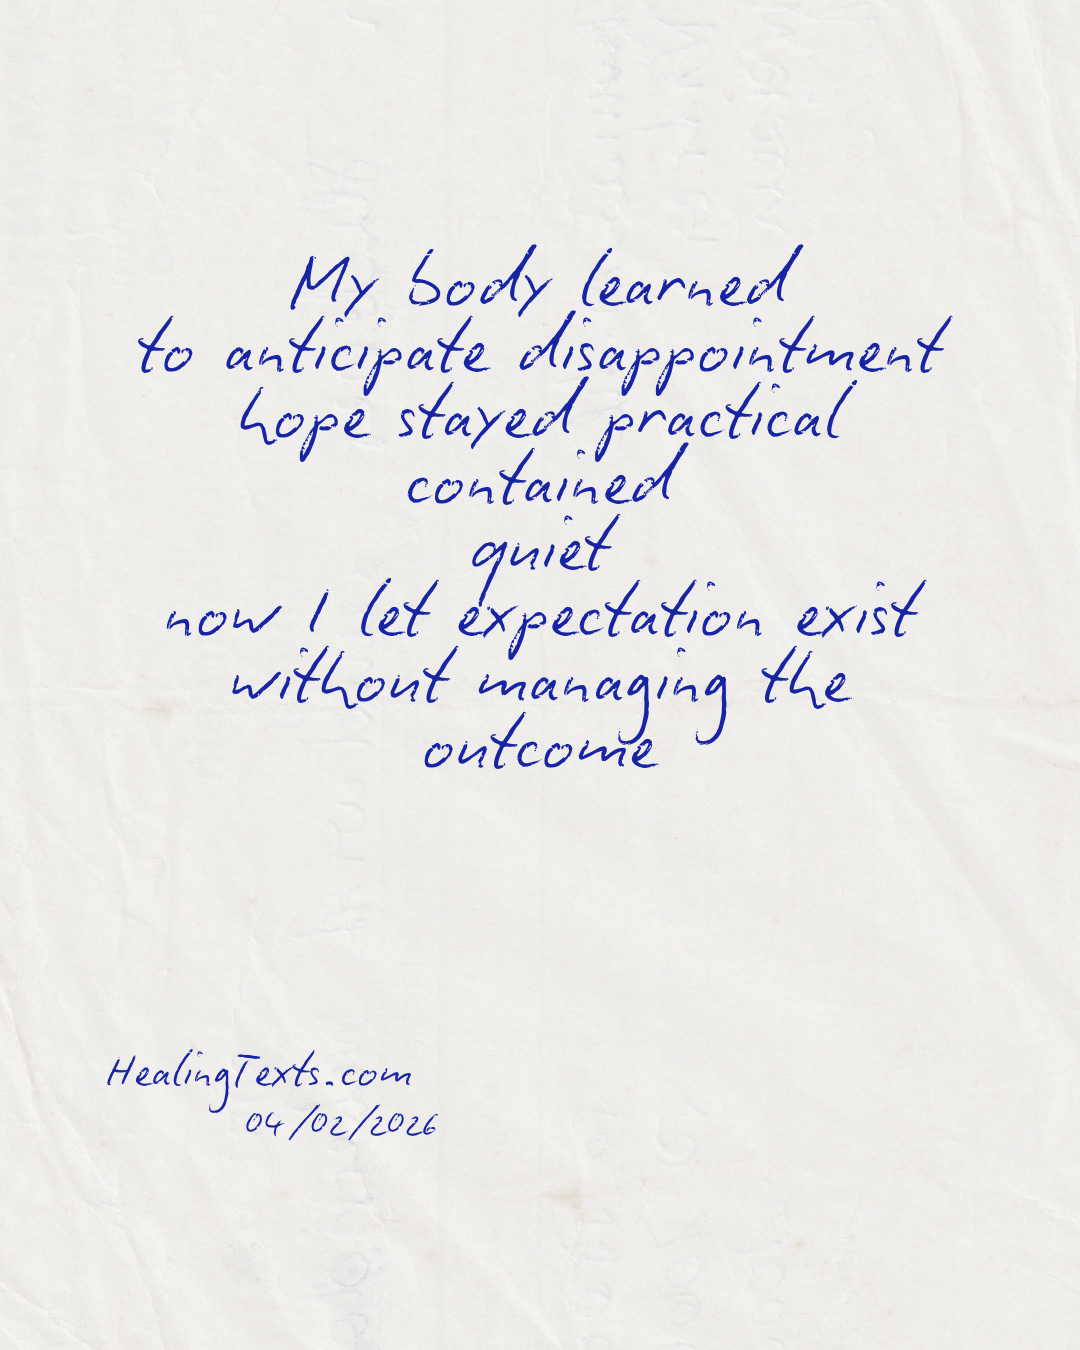 My body learned
to anticipate disappointment
hope stayed practical
contained
quiet
now I let expectation exist
without managing the
outcome
HealingTexts.com
04/02/2026